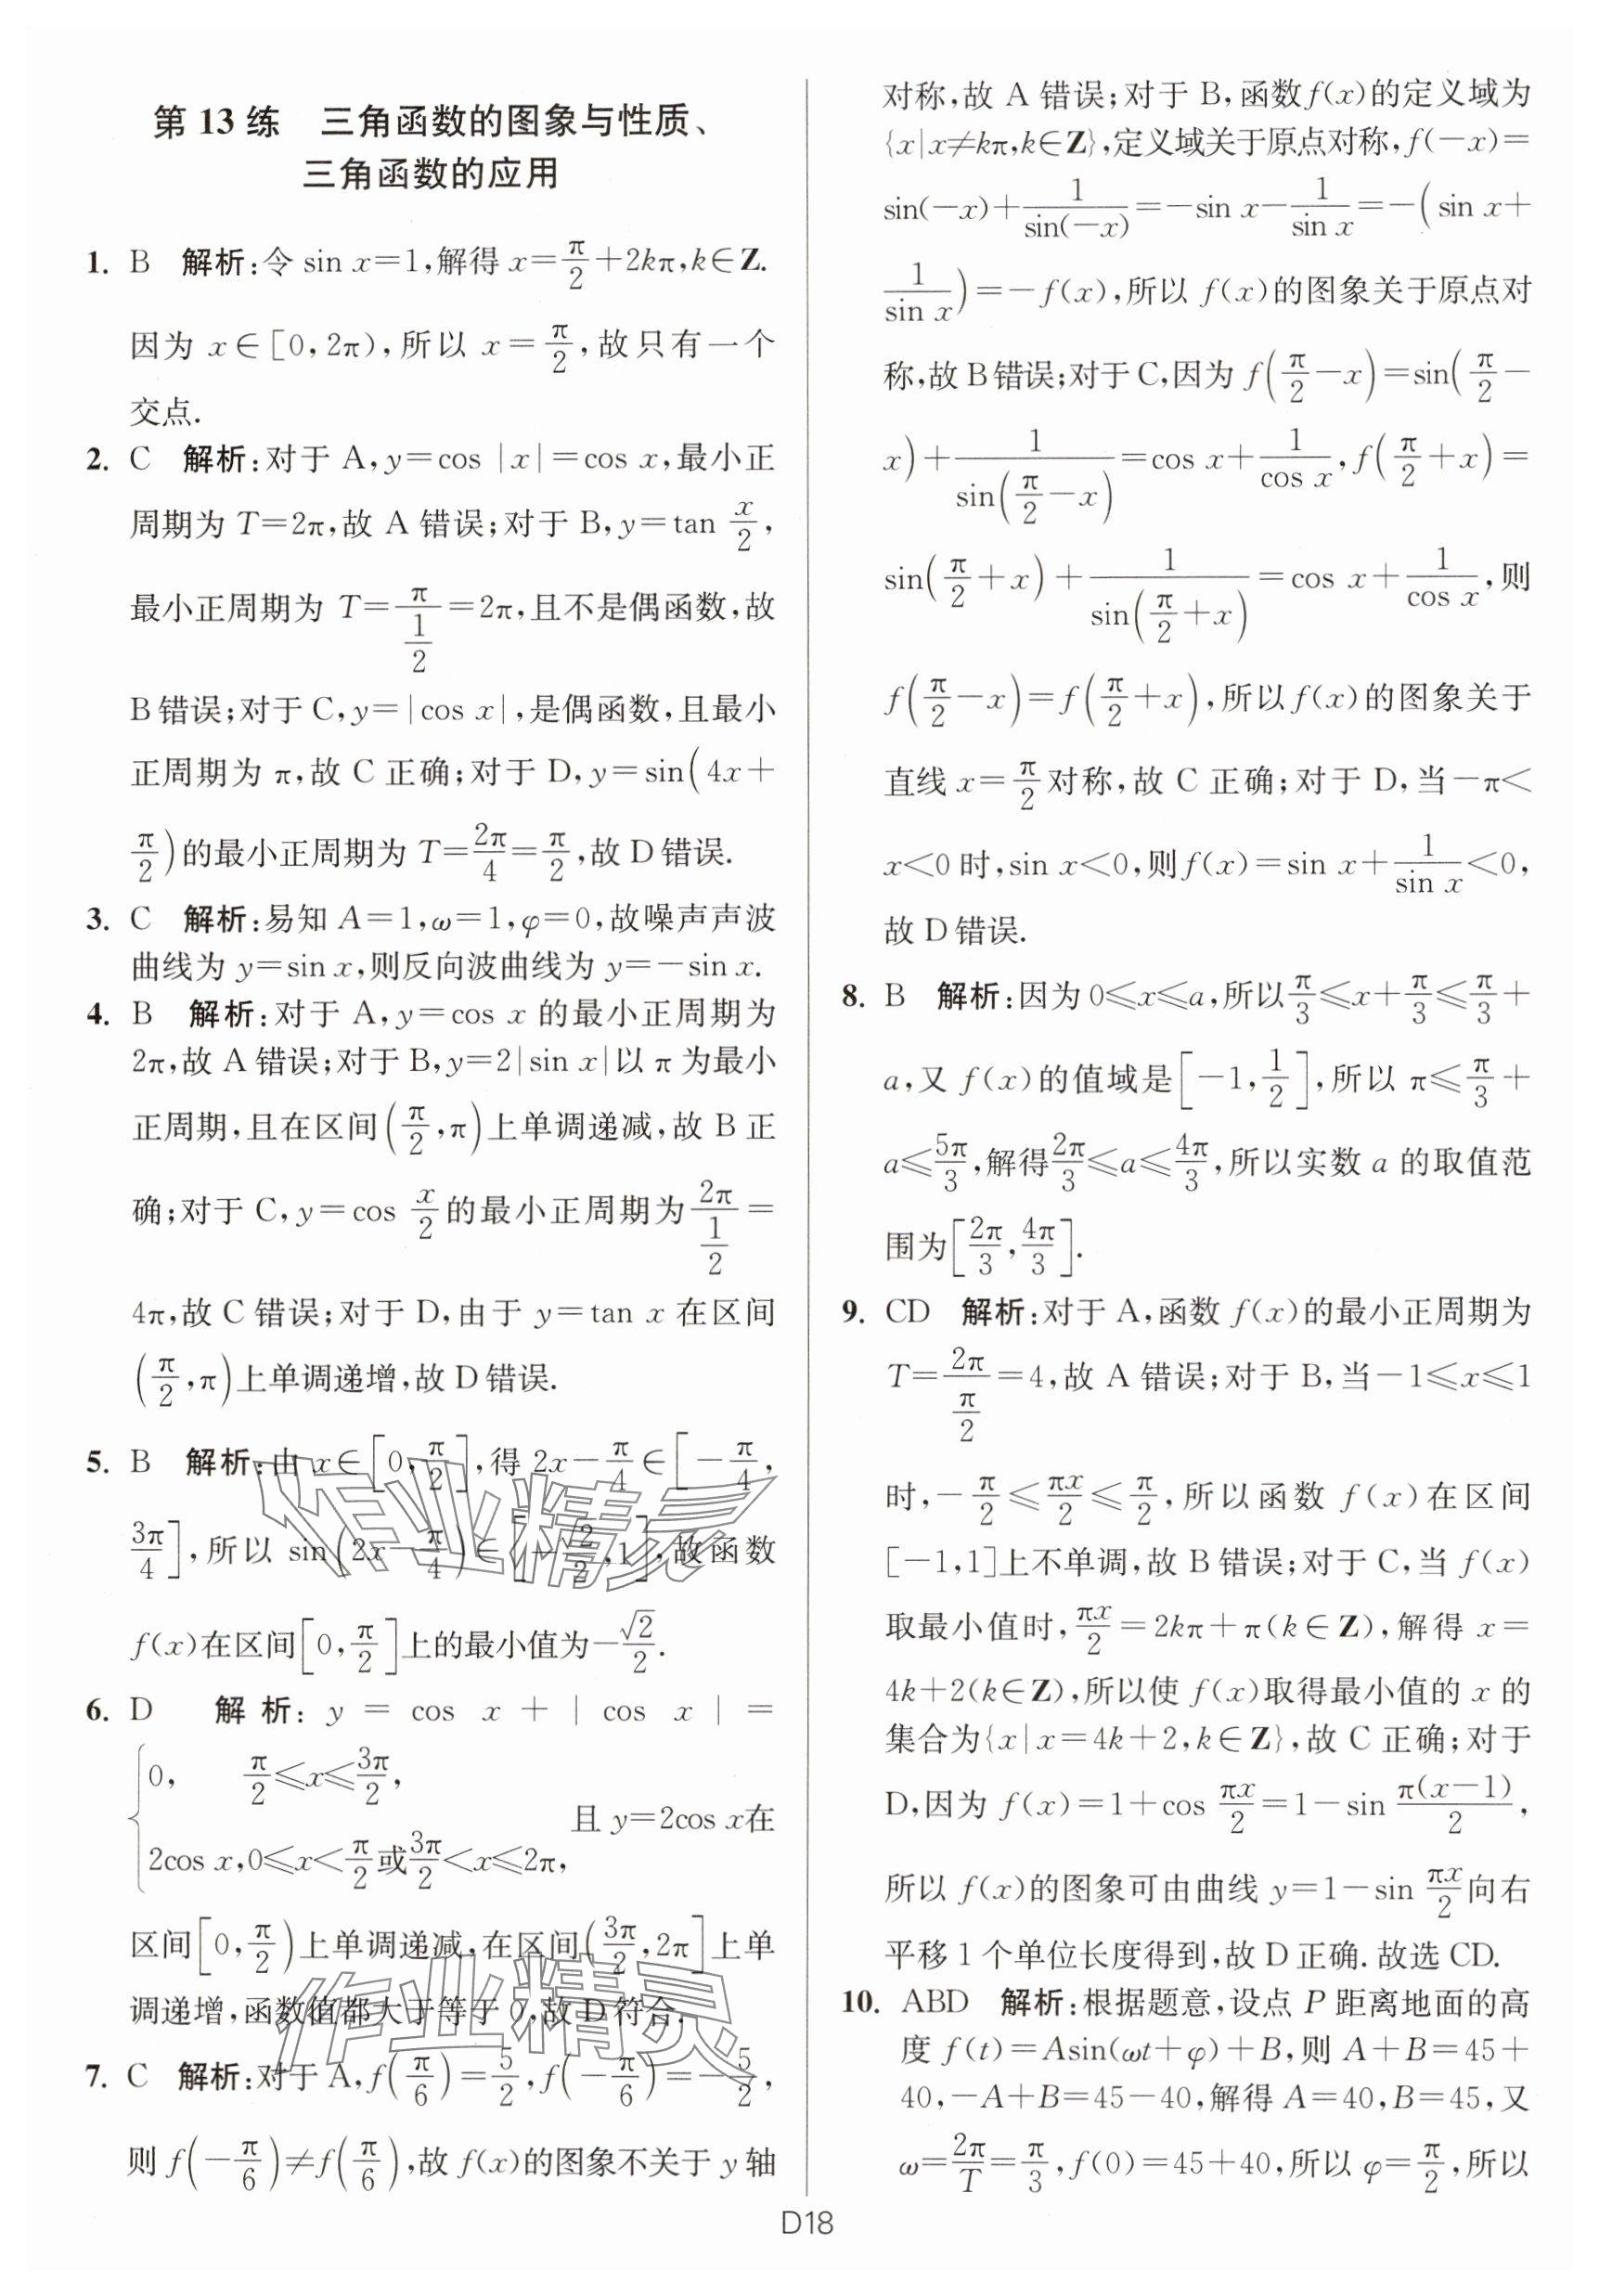 第 13 练 三角函数的图象与性质、
三角函数的应用
1. B 解析:令 sin x=1,解得 x=π/2+2kπ,k∈Z.
因为 x∈[0,2π),所以 x=π/2,故只有一个
交点.
2. C 解析:对于 A,y=cos |x|=cos x,最小正
周期为 T=2π,故 A 错误;对于 B,y=tan x/2,
最小正周期为 T=π/(1/2)=2π,且不是偶函数,故
B错误;对于 C,y=|cos x|,是偶函数,且最小
正周期为 π,故 C 正确;对于 D,y=sin(4x+
π/2)的最小正周期为 T=2π/4=π/2,故 D错误.
3. C 解析:易知 A=1,ω=1,φ=0,故噪声声波
曲线为 y=sin x,则反向波曲线为 y=-sin x.
4. B 解析:对于 A,y=cos x 的最小正周期为
2π,故 A 错误;对于 B,y=2|sin x|以 π 为最小
正周期,且在区间(π/2,π)上单调递减,故 B 正
确;对于 C,y=cos x/2的最小正周期为2π/(1/2)=
4π,故 C 错误;对于 D,由于 y=tan x 在区间
(π/2,π)上单调递增,故 D 错误.
5. B 解析:由 x∈[0,π/2],得 2x-π/4∈[-π/4,
3π/4],所以 sin(2x-π/4)∈[-√2/2,1],故函数
f(x)在区间[0,π/2]上的最小值为-√2/2.
6. D 解析: y = cos x + | cos x | =
{0, π/2≤x≤3π/2,
2cos x,0≤x<π/2或3π/2<x≤2π, 且 y=2cos x在
区间[0,π/2)上单调递减,在区间(3π/2,2π]上单
调递增,函数值都大于等于 0,故 D 符合.
7. C 解析:对于 A,f(π/6)=5/2,f(-π/6)=-5/2,
则 f(-π/6)≠f(π/6),故 f(x)的图象不关于 y轴
对称,故 A 错误;对于 B,函数f(x)的定义域为
{x|x≠kπ,k∈Z},定义域关于原点对称,f(-x)=
sin(-x)+1/sin(-x)=-sin x-1/sin x=-(sin x+
1/sin x)=-f(x),所以 f(x)的图象关于原点对
称,故 B错误;对于 C,因为 f(π/2-x)=sin(π/2-
x)+1/sin(π/2-x)=cos x+1/cos x,f(π/2+x)=
sin(π/2+x)+1/sin(π/2+x)=cos x+1/cos x,则
f(π/2-x)=f(π/2+x),所以f(x)的图象关于
直线 x=π/2对称,故 C 正确;对于 D,当-π<
x<0 时,sin x<0,则f(x)=sin x+1/sin x<0,
故 D 错误.
8. B 解析:因为 0≤x≤a,所以π/3≤x+π/3≤π/3+
a,又 f(x)的值域是[-1,1/2],所以 π≤π/3+
a≤5π/3,解得2π/3≤a≤4π/3,所以实数 a 的取值范
围为[2π/3,4π/3].
9. CD 解析:对于 A,函数 f(x)的最小正周期为
T=2π/(π/2)=4,故 A 错误;对于 B,当-1≤x≤1
时,-π/2≤πx/2≤π/2,所以函数 f(x)在区间
[-1,1]上不单调,故 B 错误;对于 C,当 f(x)
取最小值时,πx/2=2kπ+π(k∈Z),解得 x=
4k+2(k∈Z),所以使 f(x)取得最小值的 x 的
集合为{x|x=4k+2,k∈Z},故 C 正确;对于
D,因为 f(x)=1+cos πx/2=1-sin π(x-1)/2,
所以 f(x)的图象可由曲线 y=1-sin πx/2向右
平移 1 个单位长度得到,故 D 正确.故选 CD.
10. ABD 解析:根据题意,设点 P 距离地面的高
度 f(t)=Asin(ωt+φ)+B,则 A+B=45+
40,-A+B=45-40,解得 A=40,B=45,又
ω=2π/T=π/3,f(0)=45+40,所以 φ=π/2,所以
作业精灵
作业精灵
D18